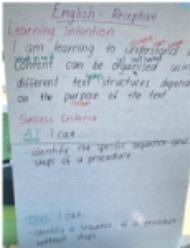 English - Receptive
Learning Intention
I am learning to understand
content can be organised using
different text structures depending
on the purpose of the text
Success Criteria
I can
- identify the specific sequence and
steps of a procedure
I can
- identify a sequence of a procedure
without steps